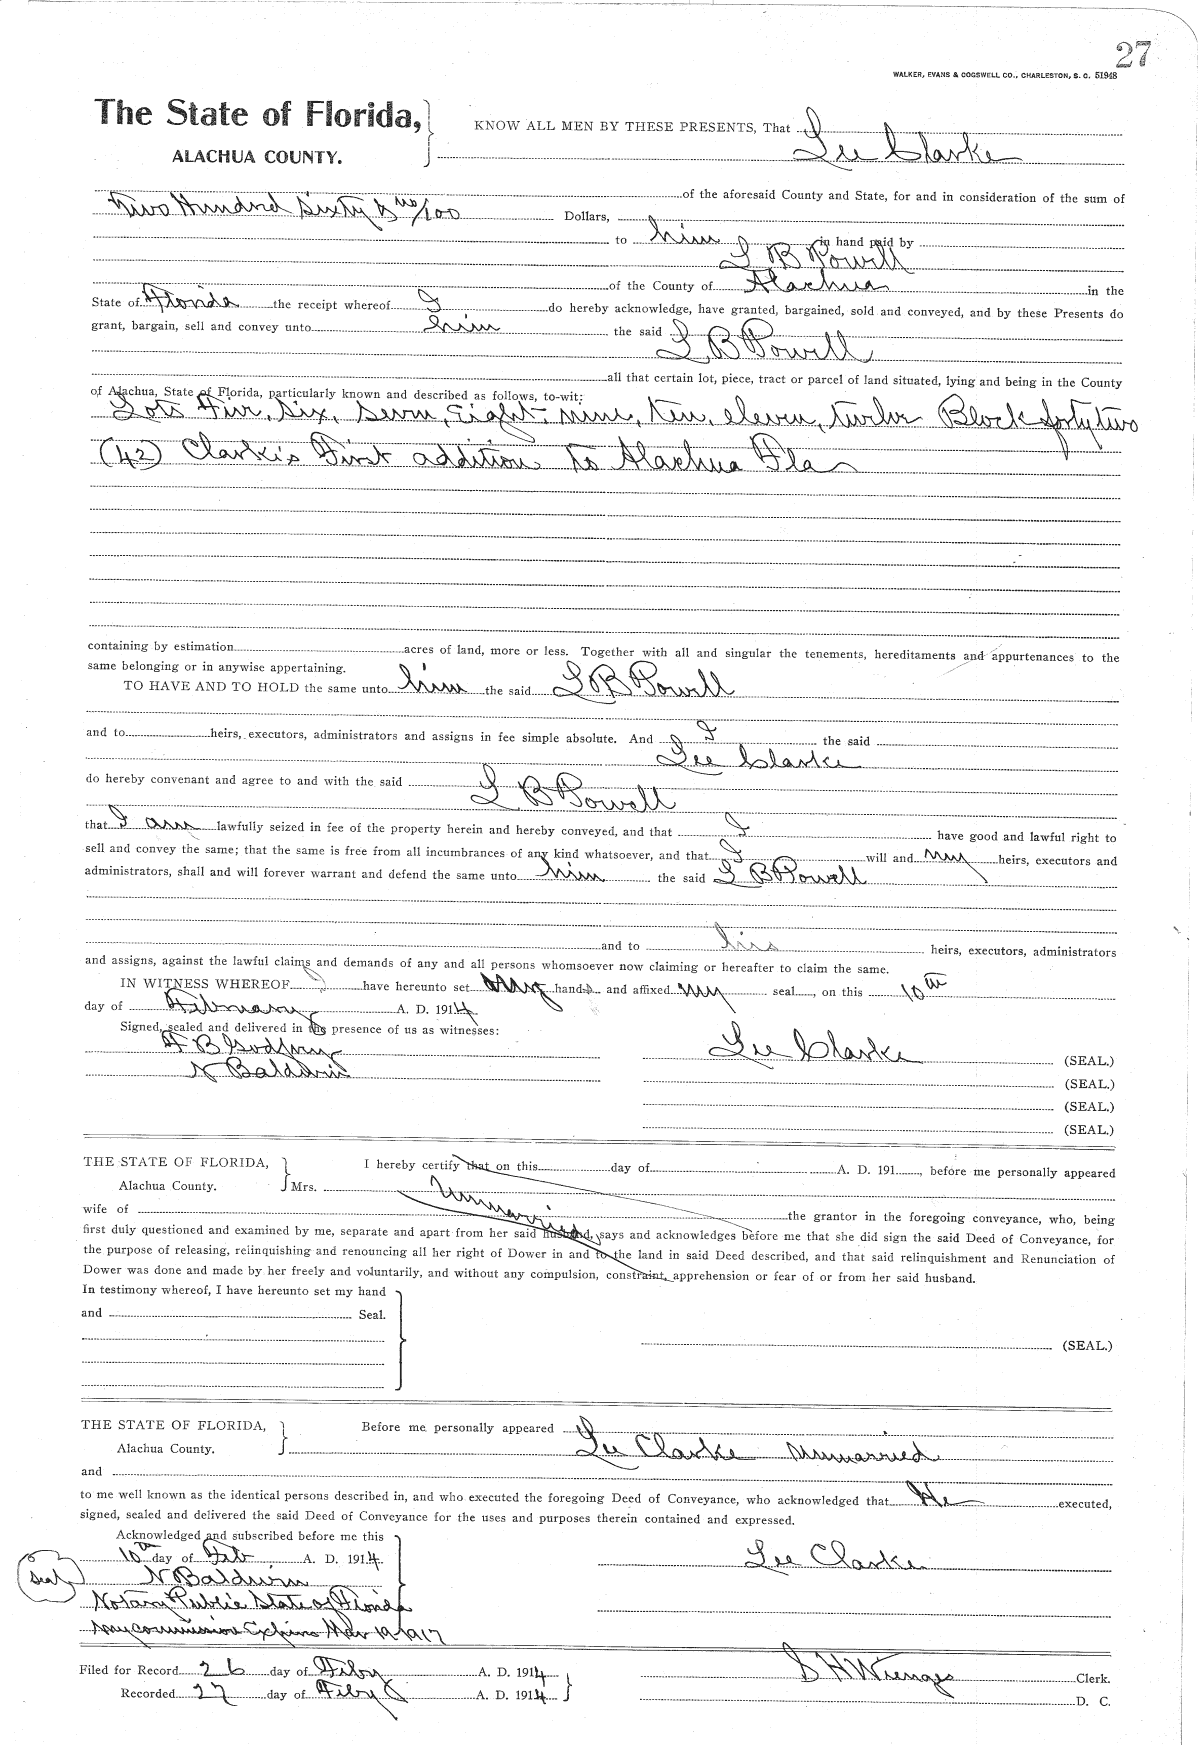 27
WALKER, EVANS & COGSWELL CO., CHARLESTON, S. C. 51948
The State of Florida,
ALACHUA COUNTY.
KNOW ALL MEN BY THESE PRESENTS, That
Lee Clarke
of the aforesaid County and State, for and in consideration of the sum of
Two Hundred Sixty & no/100 Dollars,
to him in hand paid by
L B Powell
of the County of Alachua in the
State of Florida the receipt whereof I do hereby acknowledge, have granted, bargained, sold and conveyed, and by these Presents do
grant, bargain, sell and convey unto him the said L B Powell
all that certain lot, piece, tract or parcel of land situated, lying and being in the County
of Alachua, State of Florida, particularly known and described as follows, to-wit:
Lots Five, Six, Seven, Eight, nine, Ten, eleven, twelve Block forty two
(42) Clark's First addition to Alachua Fla
containing by estimation acres of land, more or less. Together with all and singular the tenements, hereditaments and appurtenances to the
same belonging or in anywise appertaining.
TO HAVE AND TO HOLD the same unto him the said L B Powell
and to heirs, executors, administrators and assigns in fee simple absolute. And I the said
Lee Clarke
do hereby convenant and agree to and with the said L B Powell
that I am lawfully seized in fee of the property herein and hereby conveyed, and that I have good and lawful right to
sell and convey the same; that the same is free from all incumbrances of any kind whatsoever, and that I will and my heirs, executors and
administrators, shall and will forever warrant and defend the same unto him the said L B Powell
and to his heirs, executors, administrators
and assigns, against the lawful claims and demands of any and all persons whomsoever now claiming or hereafter to claim the same.
IN WITNESS WHEREOF I have hereunto set my hand and affixed my seal, on this 10th
day of February A. D. 1914.
Signed, sealed and delivered in the presence of us as witnesses:
B Godfrey
N Baldwin
Lee Clarke (SEAL.)
(SEAL.)
(SEAL.)
(SEAL.)
THE STATE OF FLORIDA,
Alachua County.
I hereby certify that on this day of A. D. 191, before me personally appeared
Mrs. Unmarried
wife of the grantor in the foregoing conveyance, who, being
first duly questioned and examined by me, separate and apart from her said husband, says and acknowledges before me that she did sign the said Deed of Conveyance, for
the purpose of releasing, relinquishing and renouncing all her right of Dower in and to the land in said Deed described, and that said relinquishment and Renunciation of
Dower was done and made by her freely and voluntarily, and without any compulsion, constraint, apprehension or fear of or from her said husband.
In testimony whereof, I have hereunto set my hand
and Seal.
(SEAL.)
THE STATE OF FLORIDA,
Alachua County.
Before me personally appeared
Lee Clarke unmarried
and
to me well known as the identical persons described in, and who executed the foregoing Deed of Conveyance, who acknowledged that He executed,
signed, sealed and delivered the said Deed of Conveyance for the uses and purposes therein contained and expressed.
Acknowledged and subscribed before me this
10th day of Feb A. D. 1914.
Lee Clarke
Seal
N Baldwin
Notary Public State of Florida
My commission Expires Mar 19 1917
Filed for Record 26 day of Feby A. D. 1914
Recorded 27 day of Feby A. D. 1914
S H Wienges Clerk.
D. C.